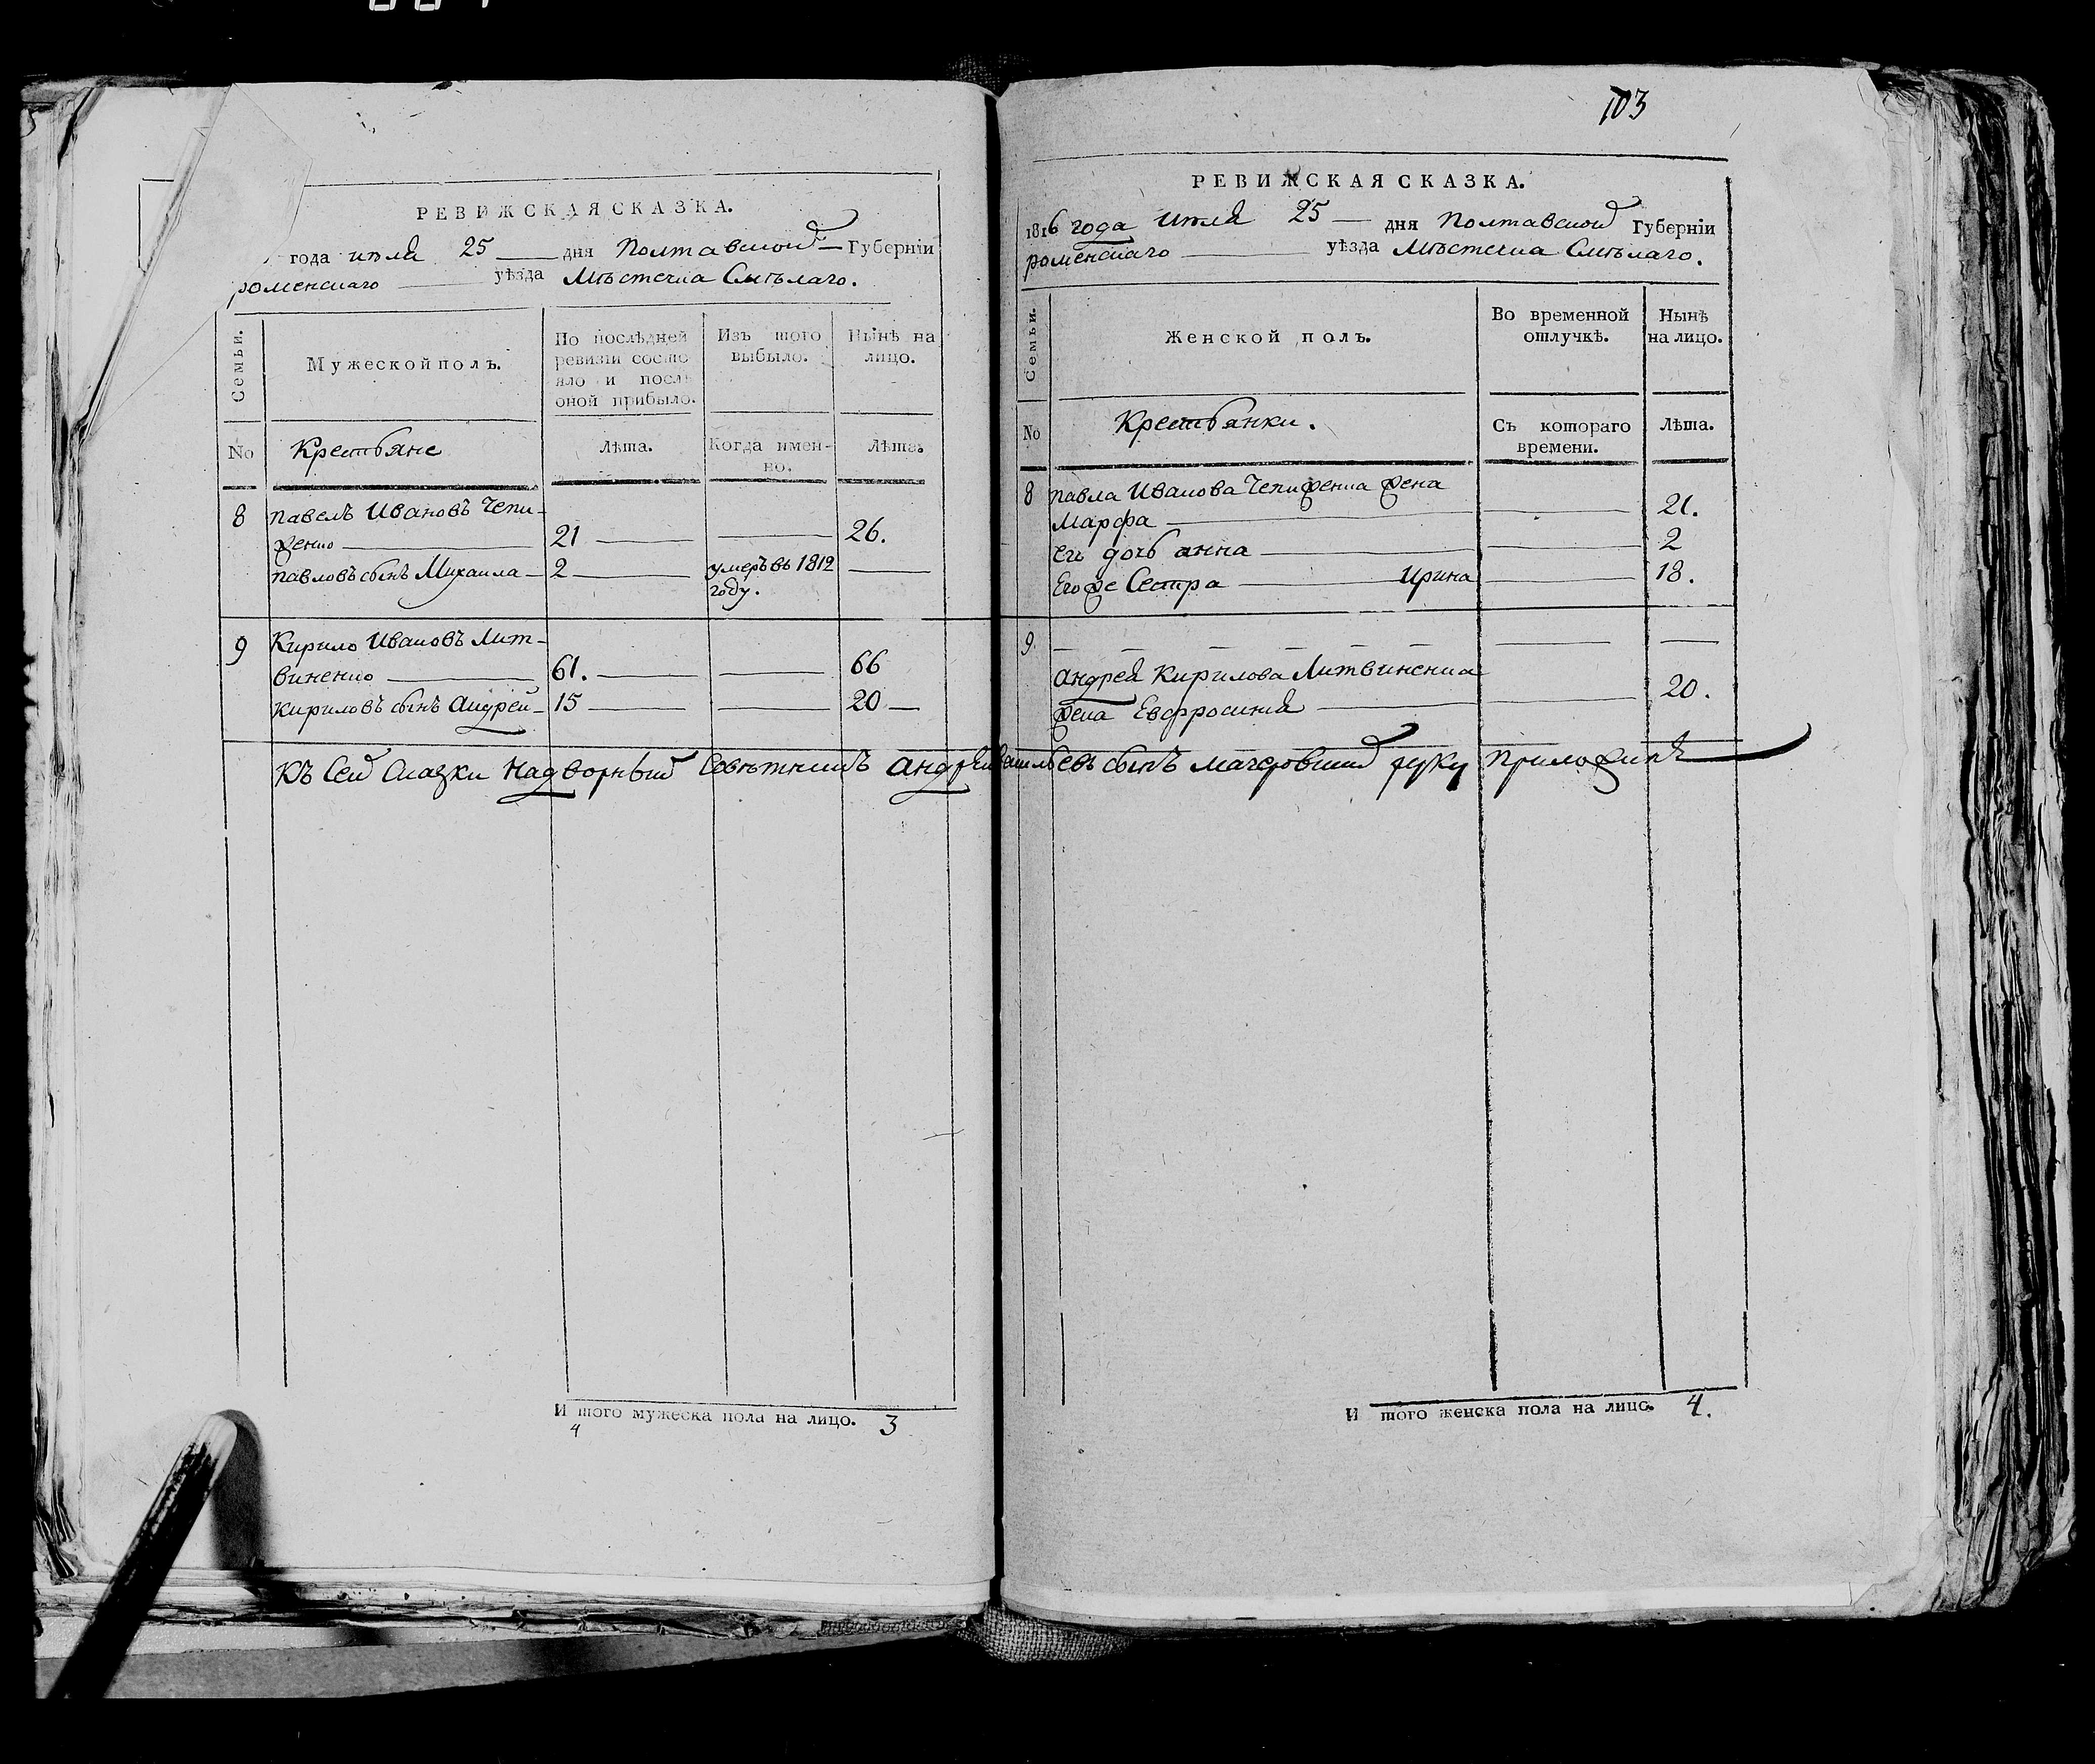 РЕВИЖСКАЯ СКАЗКА.
года июля 25 дня Полтавской Губерніи
роменскаго уѣзда Мѣстечка Смѣлаго.
Семьи.
Мужеской полъ.
По послѣдней ревизіи состояло и послѣ оной прибыло.
Изъ того выбыло.
Нынѣ на лицо.
No
Крестьяне
Лѣта.
Когда именно.
Лѣта.
8 павелъ Ивановъ Чепи-
женко 21 26.
павловъ сынъ Михаила 2 умеръ въ 1812
году.
9 Кирило Ивановъ Лит-
виненко 61. 66
кириловъ сынъ Андрей 15 20
И того мужеска пола на лицо. 3
4
103
РЕВИЖСКАЯ СКАЗКА.
1816 года июля 25 дня Полтавской Губерніи
роменскаго уѣзда Мѣстечка Смѣлаго.
Семьи.
Женской полъ.
Во временной отлучкѣ.
Нынѣ на лицо.
No
Крестьянки.
Съ котораго времени.
Лѣта.
8 павла Иванова Чепиженка жена
Марфа 21.
его дочь анна 2
Егоже Сестра Ирина 18.
9
андрея Кирилова Литвиненка
жена Евфросиния 20.
Къ сей сказки надворный советникъ андрей сынъ руку приложилъ
И того женска пола на лицо. 4.